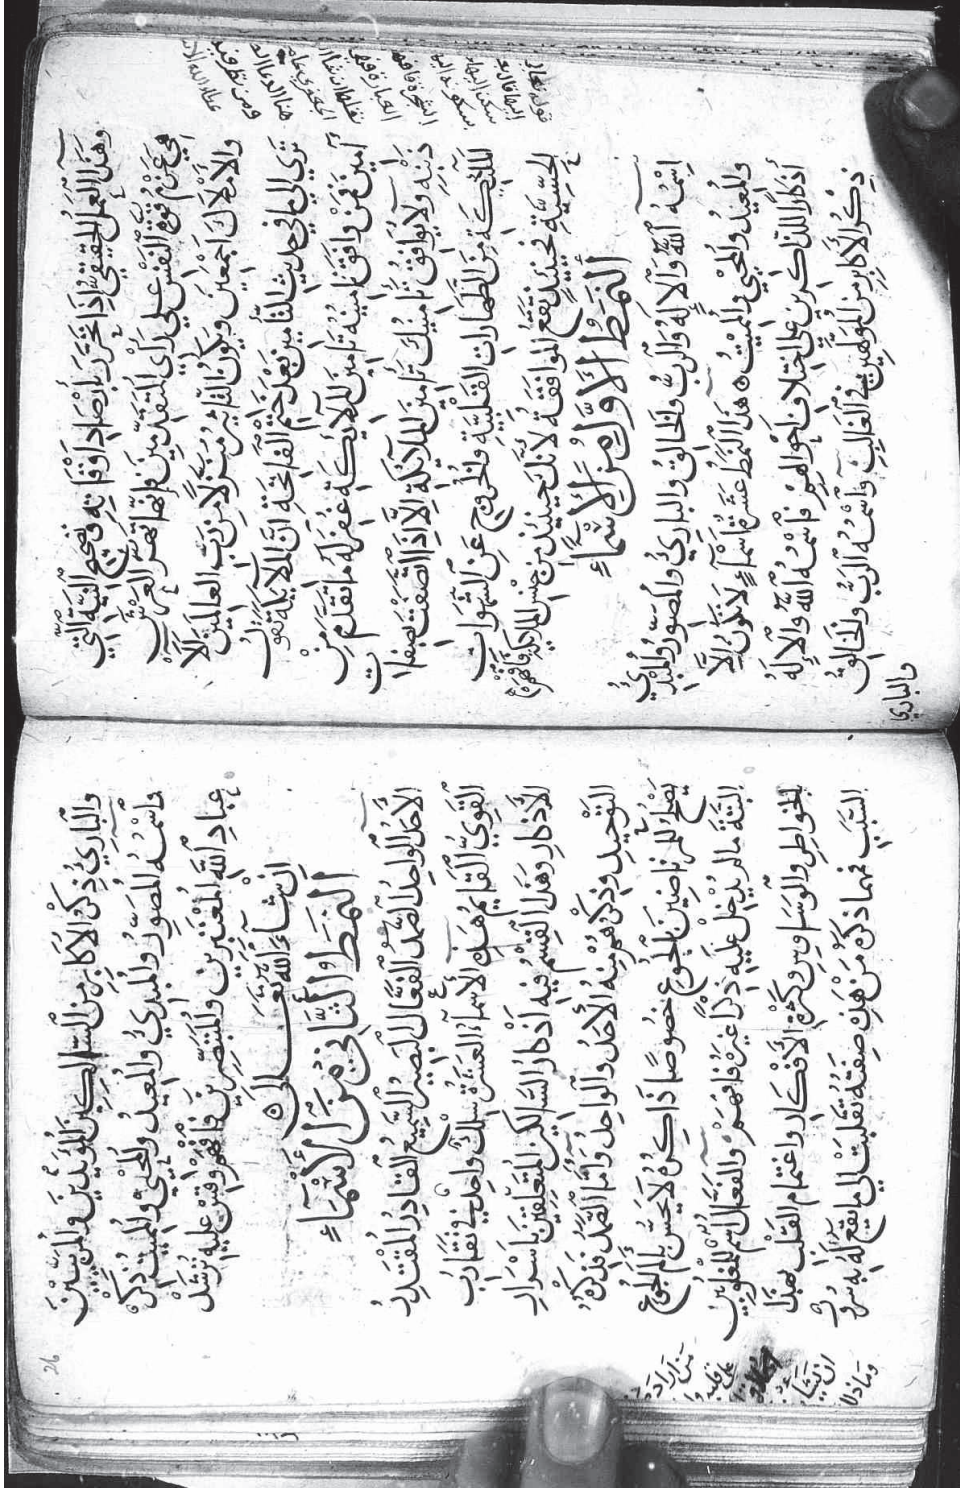 وَهَذَا الْعَمَلُ الْحَقِيقِيُّ إِذَا تَحَرَّرَ بِأَرْصَادِ أَوْقَاتِهِ فَتَصِحُّ النِّيَّةُ الَّتِي
هِيَ عَزْمُ قُوَّةِ النَّفْسِ عَلَى رَأْيِ الْمُتَقَدِّمِينَ فَإِنَّهَا تَهُزُّ الْعَرْشَ
وَالْأَمْلَاكَ أَجْمَعِينَ وَيَكُونُ التَّأْثِيرُ مُنَزَّلًا مِنْ رَبِّ الْعَالَمِينَ أَلَا
تَرَى إِلَى مَا فِي حَدِيثِ التَّأْمِينِ بَعْدَ خَتْمِ الْفَاتِحَةِ إِنَّ الْمَلَائِكَةَ تَقُولُ
آمِينَ فَمَنْ وَافَقَ تَأْمِينُهُ تَأْمِينَ الْمَلَائِكَةِ غُفِرَ لَهُ مَا تَقَدَّمَ مِنْ
ذَنْبِهِ وَلَا يُوَافِقُ تَأْمِينُكَ تَأْمِينَ الْمَلَائِكَةِ إِلَّا إِذَا اتَّصَفْتَ بِصِفَاتِ
الْمَلَائِكَةِ مِنَ الطَّهَارَاتِ الْقَلْبِيَّةِ وَالْخُرُوجِ عَنِ الشَّهَوَاتِ
الْحِسِّيَّةِ فَحِينَئِذٍ تَقَعُ الْمُوَافَقَةُ لِأَنَّكَ حِينَئِذٍ مِنْ جِنْسِ الْمَلَائِكَةِ فَافْهَمْ
النَّمَطُ الْأَوَّلُ مِنَ الْأَسْمَاءِ
اسْمُهُ اللَّهُ وَالْإِلَهُ وَالرَّبُّ وَالْخَالِقُ وَالْبَارِئُ وَالْمُصَوِّرُ وَالْمُبْدِئُ
وَالْمُعِيدُ وَالْمُحْيِي وَالْمُمِيتُ هَذَا النَّمَطُ عَشَرَةُ أَسْمَاءٍ لَا تَكُونُ إِلَّا
أَذْكَارًا لِلذَّاكِرِينَ عَلَى اخْتِلَافِ أَحْوَالِهِمْ فَاسْمُهُ اللَّهُ وَالْإِلَهُ
ذِكْرُ الْأَكَابِرِ مِنَ الْمُوَلَّهِينَ فِي الْغَالِبِ وَاسْمُهُ الرَّبُّ وَالْخَالِقُ
وَالْبَارِئُ
وَالْبَارِئُ ذِكْرُ الْأَكَابِرِ مِنَ السَّالِكِينَ الْمُؤَيَّدِينَ وَالْمُرَبَّيْنَ
وَاسْمُهُ الْمُصَوِّرُ وَالْمُبْدِئُ وَالْمُعِيدُ وَالْمُحْيِي وَالْمُمِيتُ ذِكْرُ
عِبَادِ اللَّهِ الْمُعْتَبِرِينَ وَالْمُتَبَصِّرِينَ فَافْهَمْ وَقِسْ عَلَيْهِ تَرْشُدْ
إِنْ شَاءَ اللَّهُ تَعَالَى
النَّمَطُ الثَّانِي مِنَ الْأَسْمَاءِ
الْأَحَدُ الْوَاحِدُ الصَّمَدُ الْفَعَّالُ الْبَصِيرُ السَّمِيعُ الْقَادِرُ الْمُقْتَدِرُ
الْقَوِيُّ الْقَائِمُ هَذِهِ الْأَسْمَاءُ الْعَشَرَةُ سِلْكٌ وَاحِدٌ فِي تَقَارُبِ
الْأَذْكَارِ وَهَذَا الْقِسْمُ فِيهِ أَذْكَارُ السَّالِكِينَ الْمُتَعَلِّقِينَ بِأَسْرَارِ
التَّوْحِيدِ وَذِكْرُهُمْ مِنْهُ الْأَحَدُ وَالْوَاحِدُ وَأَمَّا الصَّمَدُ فَذِكْرُهُ
يَصْلُحُ لِلْمُرْتَاضِينَ بِالْجُوعِ خُصُوصًا ذَاكِرُهُ لَا يُحِسُّ بِأَلَمِ الْجُوعِ
الْبَتَّةَ مَا لَمْ يُدْخِلْ عَلَيْهِ ذِكْرًا غَيْرَهُ فَافْهَمْ وَالْفَعَّالُ اسْمٌ لِلْمَغْلُوبِينَ
بِالْخَوَاطِرِ وَالْوَسْوَاسِ وَكَثْرَةِ الْأَفْكَارِ وَاغْتِمَامِ الْقَلْبِ بِهَذَا
السَّبَبِ فَمَهْمَا ذَكَرَهُ مَنْ هَذِهِ صِفَتُهُ تَقَلَّبَتْ إِلَى مَا يَقَعُ لَهُ بِهِ سُرُورٌ